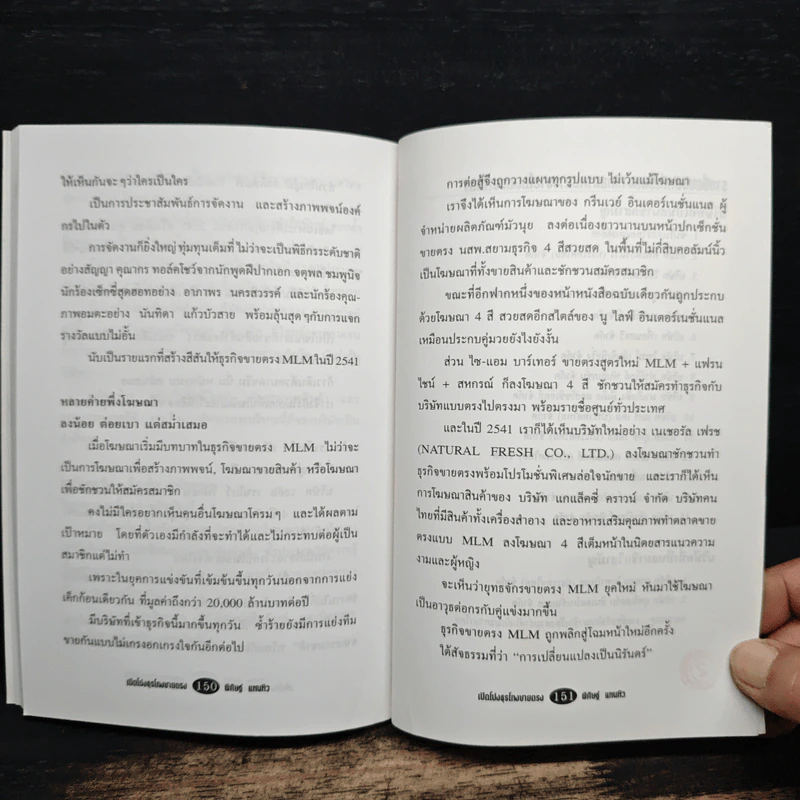 ให้เห็นกันจะ ๆว่าใครเป็นใคร
เป็นการประชาสัมพันธ์การจัดงาน และสร้างภาพพจน์องค์
กรไปในตัว
การจัดงานก็ยิ่งใหญ่ ทุ่มทุนเต็มที่ ไม่ว่าจะเป็นพิธีกรระดับชาติ
อย่างสัญญา คุณากร ทอล์คโชว์จากนักพูดฝีปากเอก จตุพล ชมพูนิช
นักร้องเซ็กซี่สุดฮอทอย่าง อาภาพร นครสวรรค์ และนักร้องคุณ-
ภาพอมตะอย่าง นันทิดา แก้วบัวสาย พร้อมลุ้นสุด ๆกับการแจก
รางวัลแบบไม่อั้น
นับเป็นรายแรกที่สร้างสีสันให้ธุรกิจขายตรง MLM ในปี 2541
หลายค่ายพึ่งโฆษณา
ลงน้อย ต่อยเบา แต่สม่ำเสมอ
เมื่อโฆษณาเริ่มมีบทบาทในธุรกิจขายตรง MLM ไม่ว่าจะ
เป็นการโฆษณาเพื่อสร้างภาพพจน์, โฆษณาขายสินค้า หรือโฆษณา
เพื่อชักชวนให้สมัครสมาชิก
คงไม่มีใครอยากเห็นคนอื่นโฆษณาโครม ๆ และได้ผลตาม
เป้าหมาย โดยที่ตัวเองมีกำลังที่จะทำได้และไม่กระทบต่อผู้เป็น
สมาชิกแต่ไม่ทำ
เพราะในยุคการแข่งขันที่เข้มข้นขึ้นทุกวันนอกจากการแย่ง
เค้กก้อนเดียวกัน ที่มูลค่าถึงกว่า 20,000 ล้านบาทต่อปี
มีบริษัทที่เข้าธุรกิจนี้มากขึ้นทุกวัน ซ้ำร้ายยังมีการแย่งทีม
ขายกันแบบไม่เกรงอกเกรงใจกันอีกต่อไป
เปิดโปงธุรกิจขายตรง 150 พิศิษฐ์ แทนทิว
การต่อสู้จึงถูกวางแผนทุกรูปแบบ ไม่เว้นแม้โฆษณา
เราจึงได้เห็นการโฆษณาของ กรีนเวย์ อินเตอร์เนชั่นแนล ผู้
จำหน่ายผลิตภัณฑ์มัวนุย ลงต่อเนื่องยาวนานบนหน้าปกเซ็กชั่น
ขายตรง นสพ.สยามธุรกิจ 4 สีสวยสด ในพื้นที่ไม่กี่สิบคอลัมน์นิ้ว
เป็นโฆษณาที่ทั้งขายสินค้าและชักชวนสมัครสมาชิก
ขณะที่อีกฟากหนึ่งของหน้าหนังสือฉบับเดียวกันถูกประกบ
ด้วยโฆษณา 4 สี สวยสดอีกสไตล์ของ นู ไลฟ์ อินเตอร์เนชั่นแนล
เหมือนประกบคู่มวยยังไงยังงั้น
ส่วน ไซ-แอม บาร์เทอร์ ขายตรงสูตรใหม่ MLM + แฟรน
ไชน์ + สหกรณ์ ก็ลงโฆษณา 4 สี ชักชวนให้สมัครทำธุรกิจกับ
บริษัทแบบตรงไปตรงมา พร้อมรายชื่อศูนย์ทั่วประเทศ
และในปี 2541 เราก็ได้เห็นบริษัทใหม่อย่าง เนเชอรัล เฟรช
(NATURAL FRESH CO., LTD.) ลงโฆษณาชักชวนทำ
ธุรกิจขายตรงพร้อมโปรโมชั่นพิเศษล่อใจนักขาย และเราก็ได้เห็น
การโฆษณาสินค้าของ บริษัท แกแล็คซี่ คราวน์ จำกัด บริษัทคน
ไทยที่มีสินค้าทั้งเครื่องสำอาง และอาหารเสริมคุณภาพทำตลาดขาย
ตรงแบบ MLM ลงโฆษณา 4 สีเต็มหน้าในนิตยสารแนวความ
งามและผู้หญิง
จะเห็นว่ายุทธจักรขายตรง MLM ยุคใหม่ หันมาใช้โฆษณา
เป็นอาวุธต่อกรกับคู่แข่งมากขึ้น
ธุรกิจขายตรง MLM ถูกพลิกสู่โฉมหน้าใหม่อีกครั้ง
ได้สัจธรรมที่ว่า "การเปลี่ยนแปลงเป็นนิรันดร์"
เปิดโปงธุรกิจขายตรง 151 พิศิษฐ์ แทนทิว